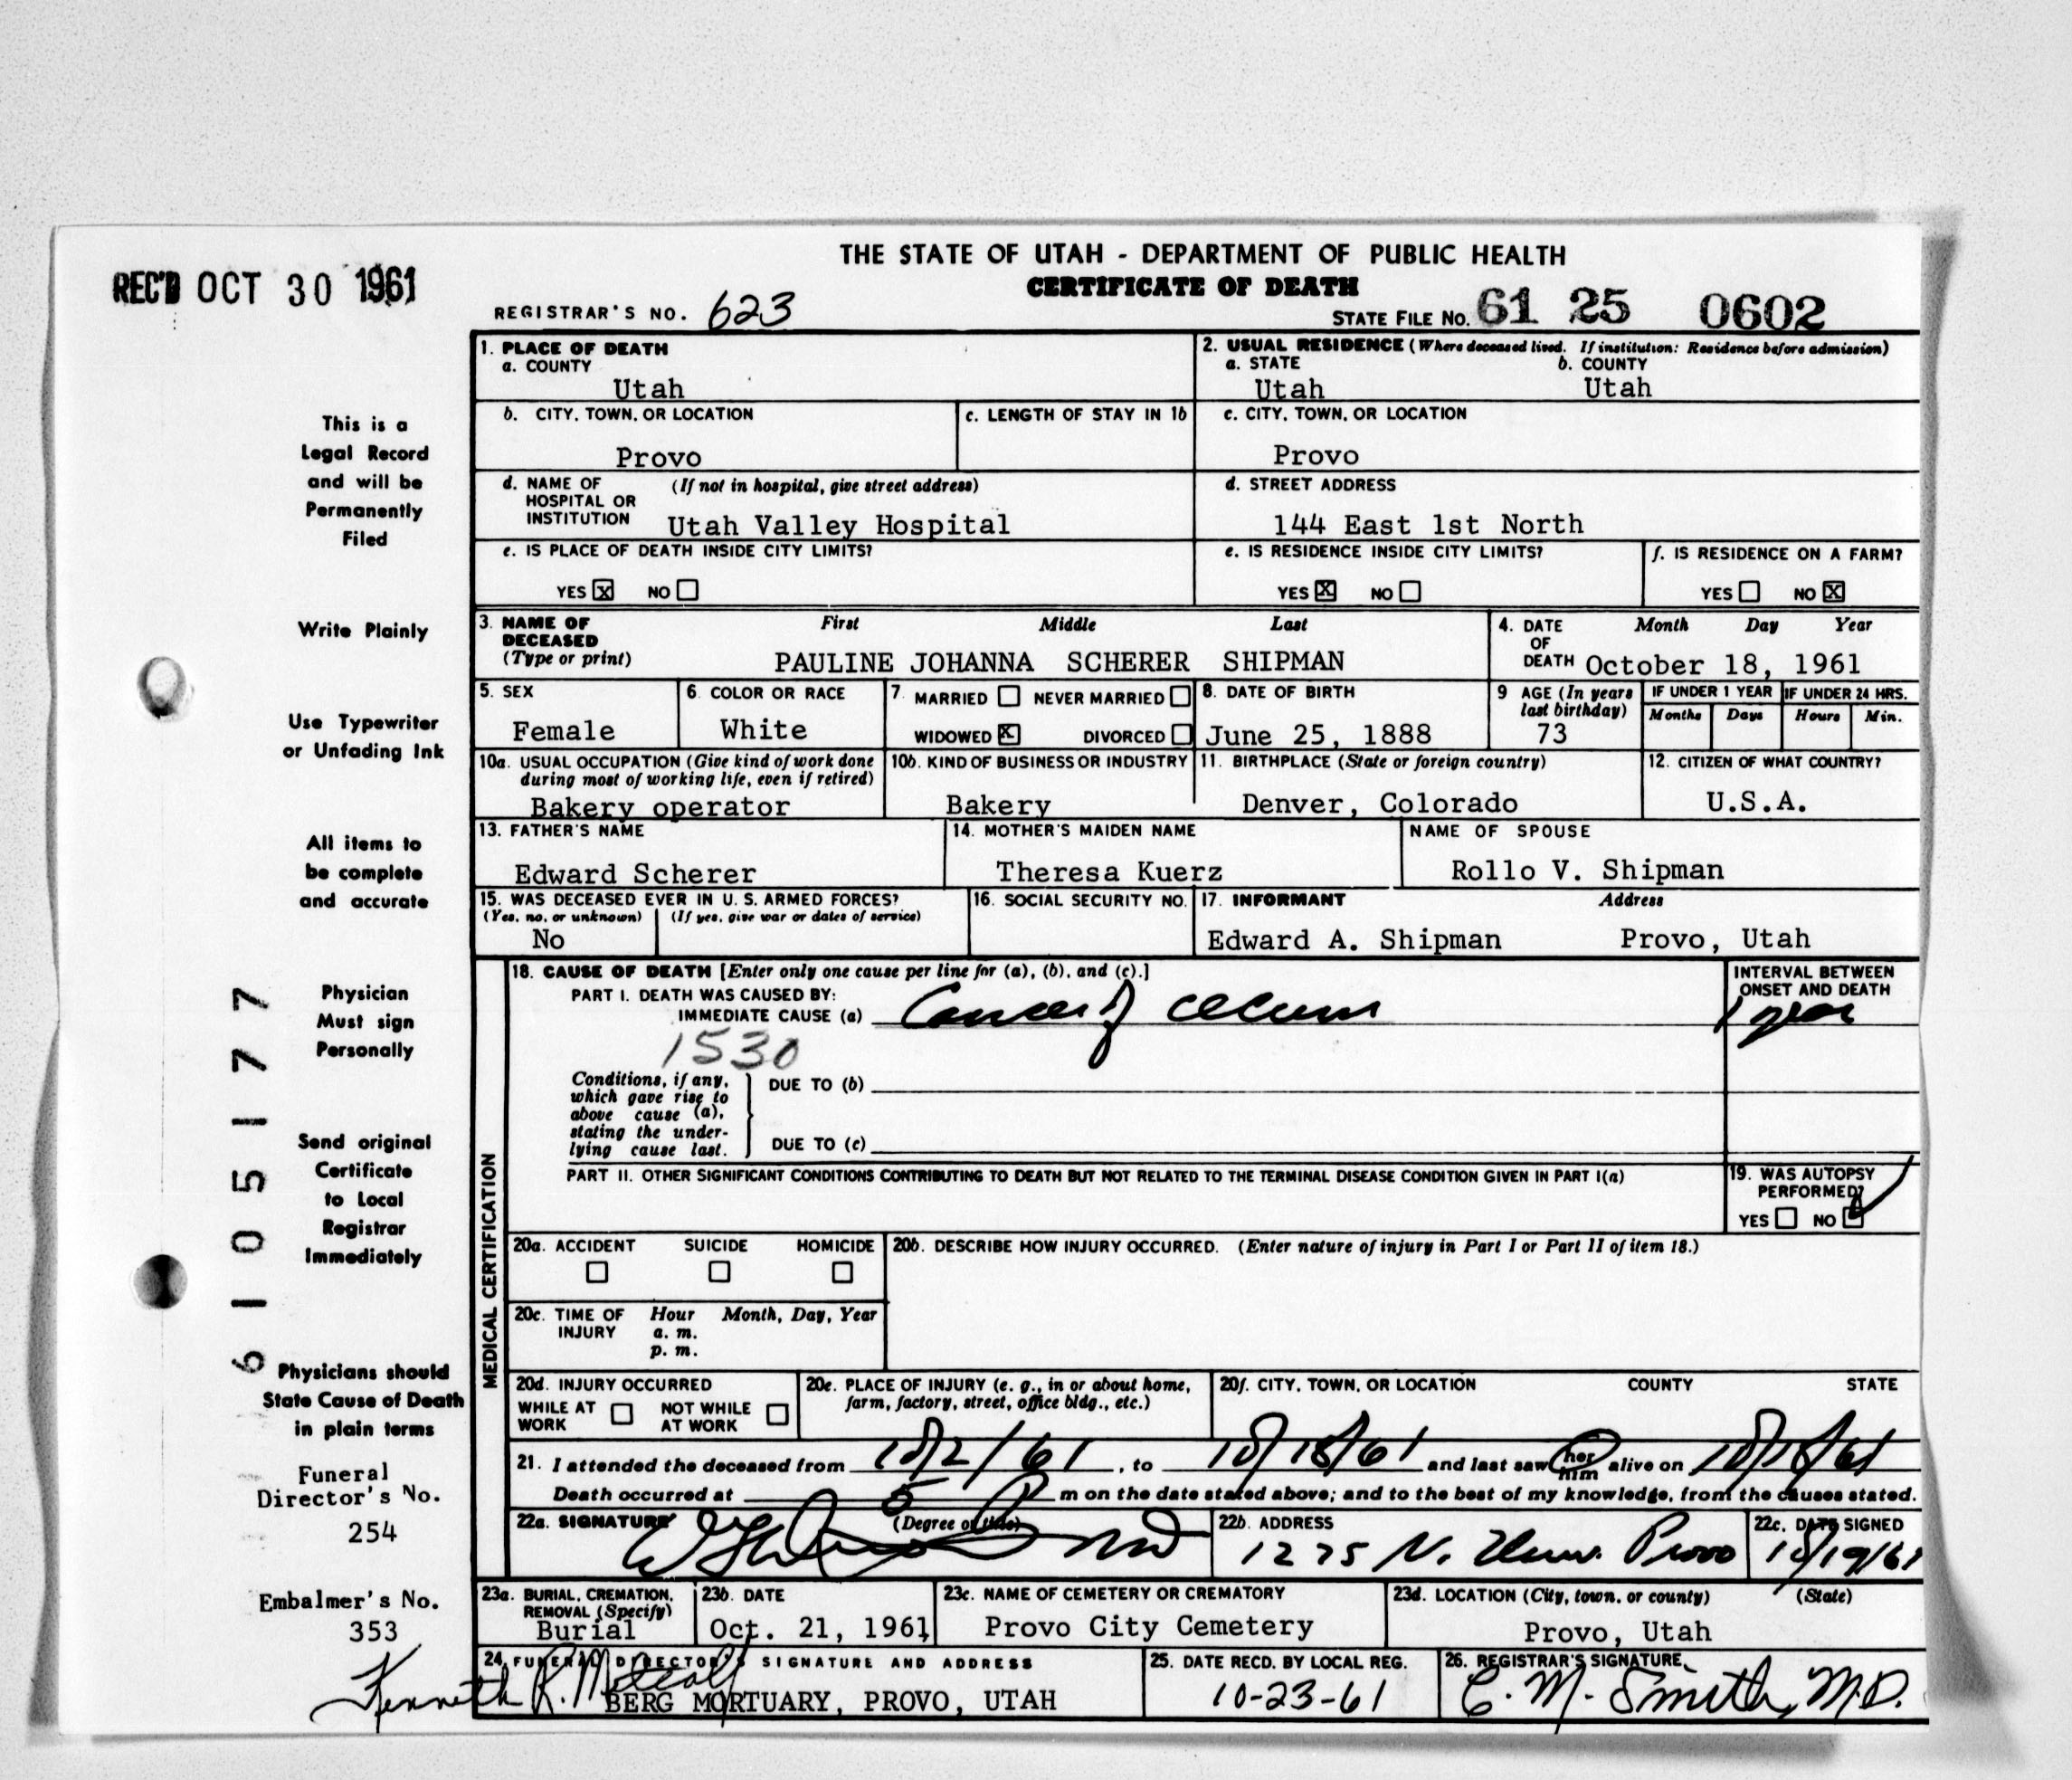 THE STATE OF UTAH - DEPARTMENT OF PUBLIC HEALTH
REC'D OCT 30 1961
CERTIFICATE OF DEATH
REGISTRAR'S NO. 623
STATE FILE No. 61 25 0602
1. PLACE OF DEATH
a. COUNTY
Utah
2. USUAL RESIDENCE (Where deceased lived. If institution: Residence before admission)
a. STATE b. COUNTY
Utah Utah
b. CITY, TOWN, OR LOCATION
Provo
c. LENGTH OF STAY IN 1b
c. CITY, TOWN, OR LOCATION
Provo
d. NAME OF (If not in hospital, give street address)
HOSPITAL OR
INSTITUTION Utah Valley Hospital
d. STREET ADDRESS
144 East 1st North
e. IS PLACE OF DEATH INSIDE CITY LIMITS?
YES X NO
e. IS RESIDENCE INSIDE CITY LIMITS?
YES X NO
f. IS RESIDENCE ON A FARM?
YES NO X
3. NAME OF First Middle Last
DECEASED
(Type or print) PAULINE JOHANNA SCHERER SHIPMAN
4. DATE Month Day Year
OF
DEATH October 18, 1961
5. SEX
Female
6. COLOR OR RACE
White
7. MARRIED NEVER MARRIED
WIDOWED X DIVORCED
8. DATE OF BIRTH
June 25, 1888
9 AGE (In years
last birthday)
73
IF UNDER 1 YEAR IF UNDER 24 HRS.
Months Days Hours Min.
10a. USUAL OCCUPATION (Give kind of work done
during most of working life, even if retired)
Bakery operator
10b. KIND OF BUSINESS OR INDUSTRY
Bakery
11. BIRTHPLACE (State or foreign country)
Denver, Colorado
12. CITIZEN OF WHAT COUNTRY?
U.S.A.
13. FATHER'S NAME
Edward Scherer
14. MOTHER'S MAIDEN NAME
Theresa Kuerz
NAME OF SPOUSE
Rollo V. Shipman
15. WAS DECEASED EVER IN U. S. ARMED FORCES?
(Yes, no, or unknown) (If yes, give war or dates of service)
No
16. SOCIAL SECURITY NO.
17. INFORMANT Address
Edward A. Shipman Provo, Utah
MEDICAL CERTIFICATION
18. CAUSE OF DEATH [Enter only one cause per line for (a), (b), and (c).]
PART I. DEATH WAS CAUSED BY:
IMMEDIATE CAUSE (a) Cancer of cecum
1530
INTERVAL BETWEEN
ONSET AND DEATH
1 year
Conditions, if any,
which gave rise to
above cause (a),
stating the under-
lying cause last.
DUE TO (b)
DUE TO (c)
PART II. OTHER SIGNIFICANT CONDITIONS CONTRIBUTING TO DEATH BUT NOT RELATED TO THE TERMINAL DISEASE CONDITION GIVEN IN PART I(a)
19. WAS AUTOPSY
PERFORMED?
YES NO
20a. ACCIDENT SUICIDE HOMICIDE
20b. DESCRIBE HOW INJURY OCCURRED. (Enter nature of injury in Part I or Part II of item 18.)
20c. TIME OF Hour Month, Day, Year
INJURY a. m.
p. m.
20d. INJURY OCCURRED
WHILE AT NOT WHILE
WORK AT WORK
20e. PLACE OF INJURY (e. g., in or about home,
farm, factory, street, office bldg., etc.)
20f. CITY, TOWN, OR LOCATION COUNTY STATE
21. I attended the deceased from 10/2/61, to 10/18/61 and last saw her him alive on 10/18/61
Death occurred at 5 P m on the date stated above; and to the best of my knowledge, from the causes stated.
22a. SIGNATURE (Degree or title)
MD
22b. ADDRESS
1275 N. Univ. Provo
22c. DATE SIGNED
10/19/61
23a. BURIAL, CREMATION,
REMOVAL (Specify)
Burial
23b. DATE
Oct. 21, 1961
23c. NAME OF CEMETERY OR CREMATORY
Provo City Cemetery
23d. LOCATION (City, town, or county) (State)
Provo, Utah
24. FUNERAL DIRECTOR'S SIGNATURE AND ADDRESS
Kenneth R. Metcalf
BERG MORTUARY, PROVO, UTAH
25. DATE RECD. BY LOCAL REG.
10-23-61
26. REGISTRAR'S SIGNATURE
C. M. Smith, M.D.
This is a
Legal Record
and will be
Permanently
Filed
Write Plainly
Use Typewriter
or Unfading Ink
All items to
be complete
and accurate
Physician
Must sign
Personally
Send original
Certificate
to Local
Registrar
Immediately
Physicians should
State Cause of Death
in plain terms
Funeral
Director's No.
254
Embalmer's No.
353
6105177